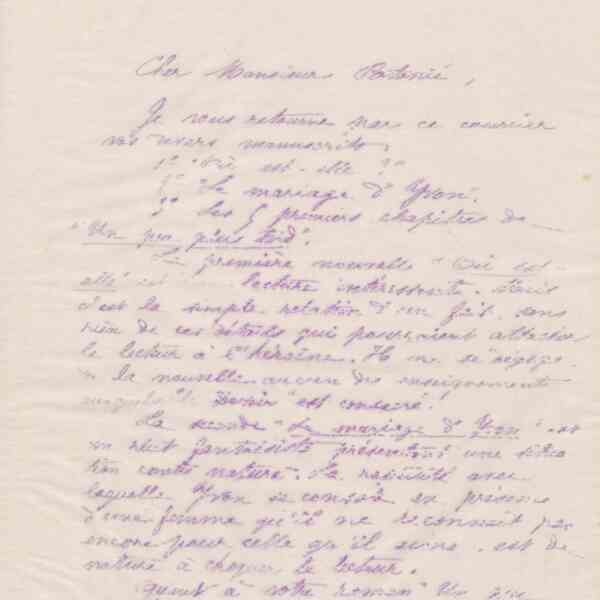 Cher Monsieur
Je vous retourne par ce courrier
vos divers manuscrits.
1° "Où est-elle ?"
"Le mariage d'Yvon".
3° Les 5 premiers chapitres de
"Un peu plus tard".
La première nouvelle "Où est-
elle" est lecture intéressante. Mais
c'est la simple relation d'un fait, sans
rien de ces détails qui pourraient attacher
le lecteur à l'héroïne. Il ne se dégage
de la nouvelle aucun des enseignements
auxquels le "Devoir" est consacré.
La seconde "Le mariage d'Yvon" est
un récit fantaisiste présentant une situa
tion contre nature. La rapidité avec
laquelle Yvon se console en présence
d'une femme qu'il ne reconnait pas
encore pour celle qu'il aime, est de
nature à choquer le lecteur.
Quant à votre roman "Un peu